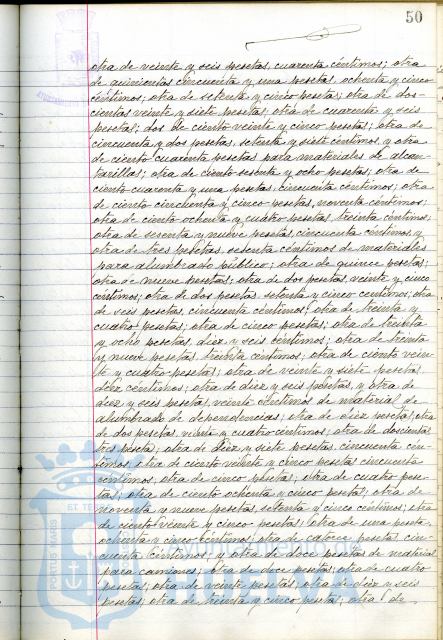 50
otra de veinte y seis pesetas, cuarenta céntimos; otra
de quinientas cincuenta y una pesetas ochenta y cinco
céntimos; otra de setenta y cinco pesetas; otra de dos-
cientas veinte y siete pesetas; otra de cuarenta y seis
pesetas; dos de ciento veinte y cinco pesetas; otra de
cincuenta y dos pesetas, setenta y siete céntimos y otra
de ciento cuarenta pesetas para materiales de alcan-
tarillas; otra de ciento sesenta y ocho pesetas; otra de
ciento cuarenta y una pesetas cincuenta céntimos; otra
de ciento cincuenta y cinco pesetas, noventa céntimos;
otra de ciento ochenta y cuatro pesetas, treinta céntimos;
otra de sesenta y nueve pesetas, cincuenta céntimos y
otra de tres pesetas, setenta céntimos de materiales
para alumbrado público; otra de quince pesetas;
otra de nueve pesetas; otra de dos pesetas, veinte y cinco
céntimos; otra de dos pesetas setenta y cinco céntimos; otra
de seis pesetas, cincuenta céntimos; otra de treinta y
cuatro pesetas; otra de cinco pesetas; otra de treinta
y ocho pesetas, diez y seis céntimos; otra de treinta
y nueve pesetas, treinta céntimos; otra de ciento vein-
te y cuatro pesetas; otra de veinte y siete pesetas,
diez céntimos; otra de diez y seis pesetas, y otra de
diez y seis pesetas, veinte céntimos de material de
alumbrado de dependencias; otra de diez pesetas; otra
de dos pesetas, veinte y cuatro céntimos; otra de doscientas
tres pesetas; otra de diez y siete pesetas cincuenta cén-
timos; otra de ciento veinte y cinco pesetas cincuenta
céntimos; otra de cinco pesetas; otra de cuatro pese-
tas; otra de ciento ochenta y cinco pesetas; otra de
noventa y nueve pesetas, setenta y cinco céntimos; otra
de ciento veinte y cinco pesetas; otra de una peseta,
ochenta y cinco céntimos; otra de catorce pesetas, cin-
cuenta céntimos; y otra de doce pesetas de material
para caminos; otra de doce pesetas; otra de cuatro
pesetas; otra de veinte pesetas; otra de diez y seis
pesetas; otra de treinta y cinco pesetas; otra de
PORTUS MARIS
ET TE